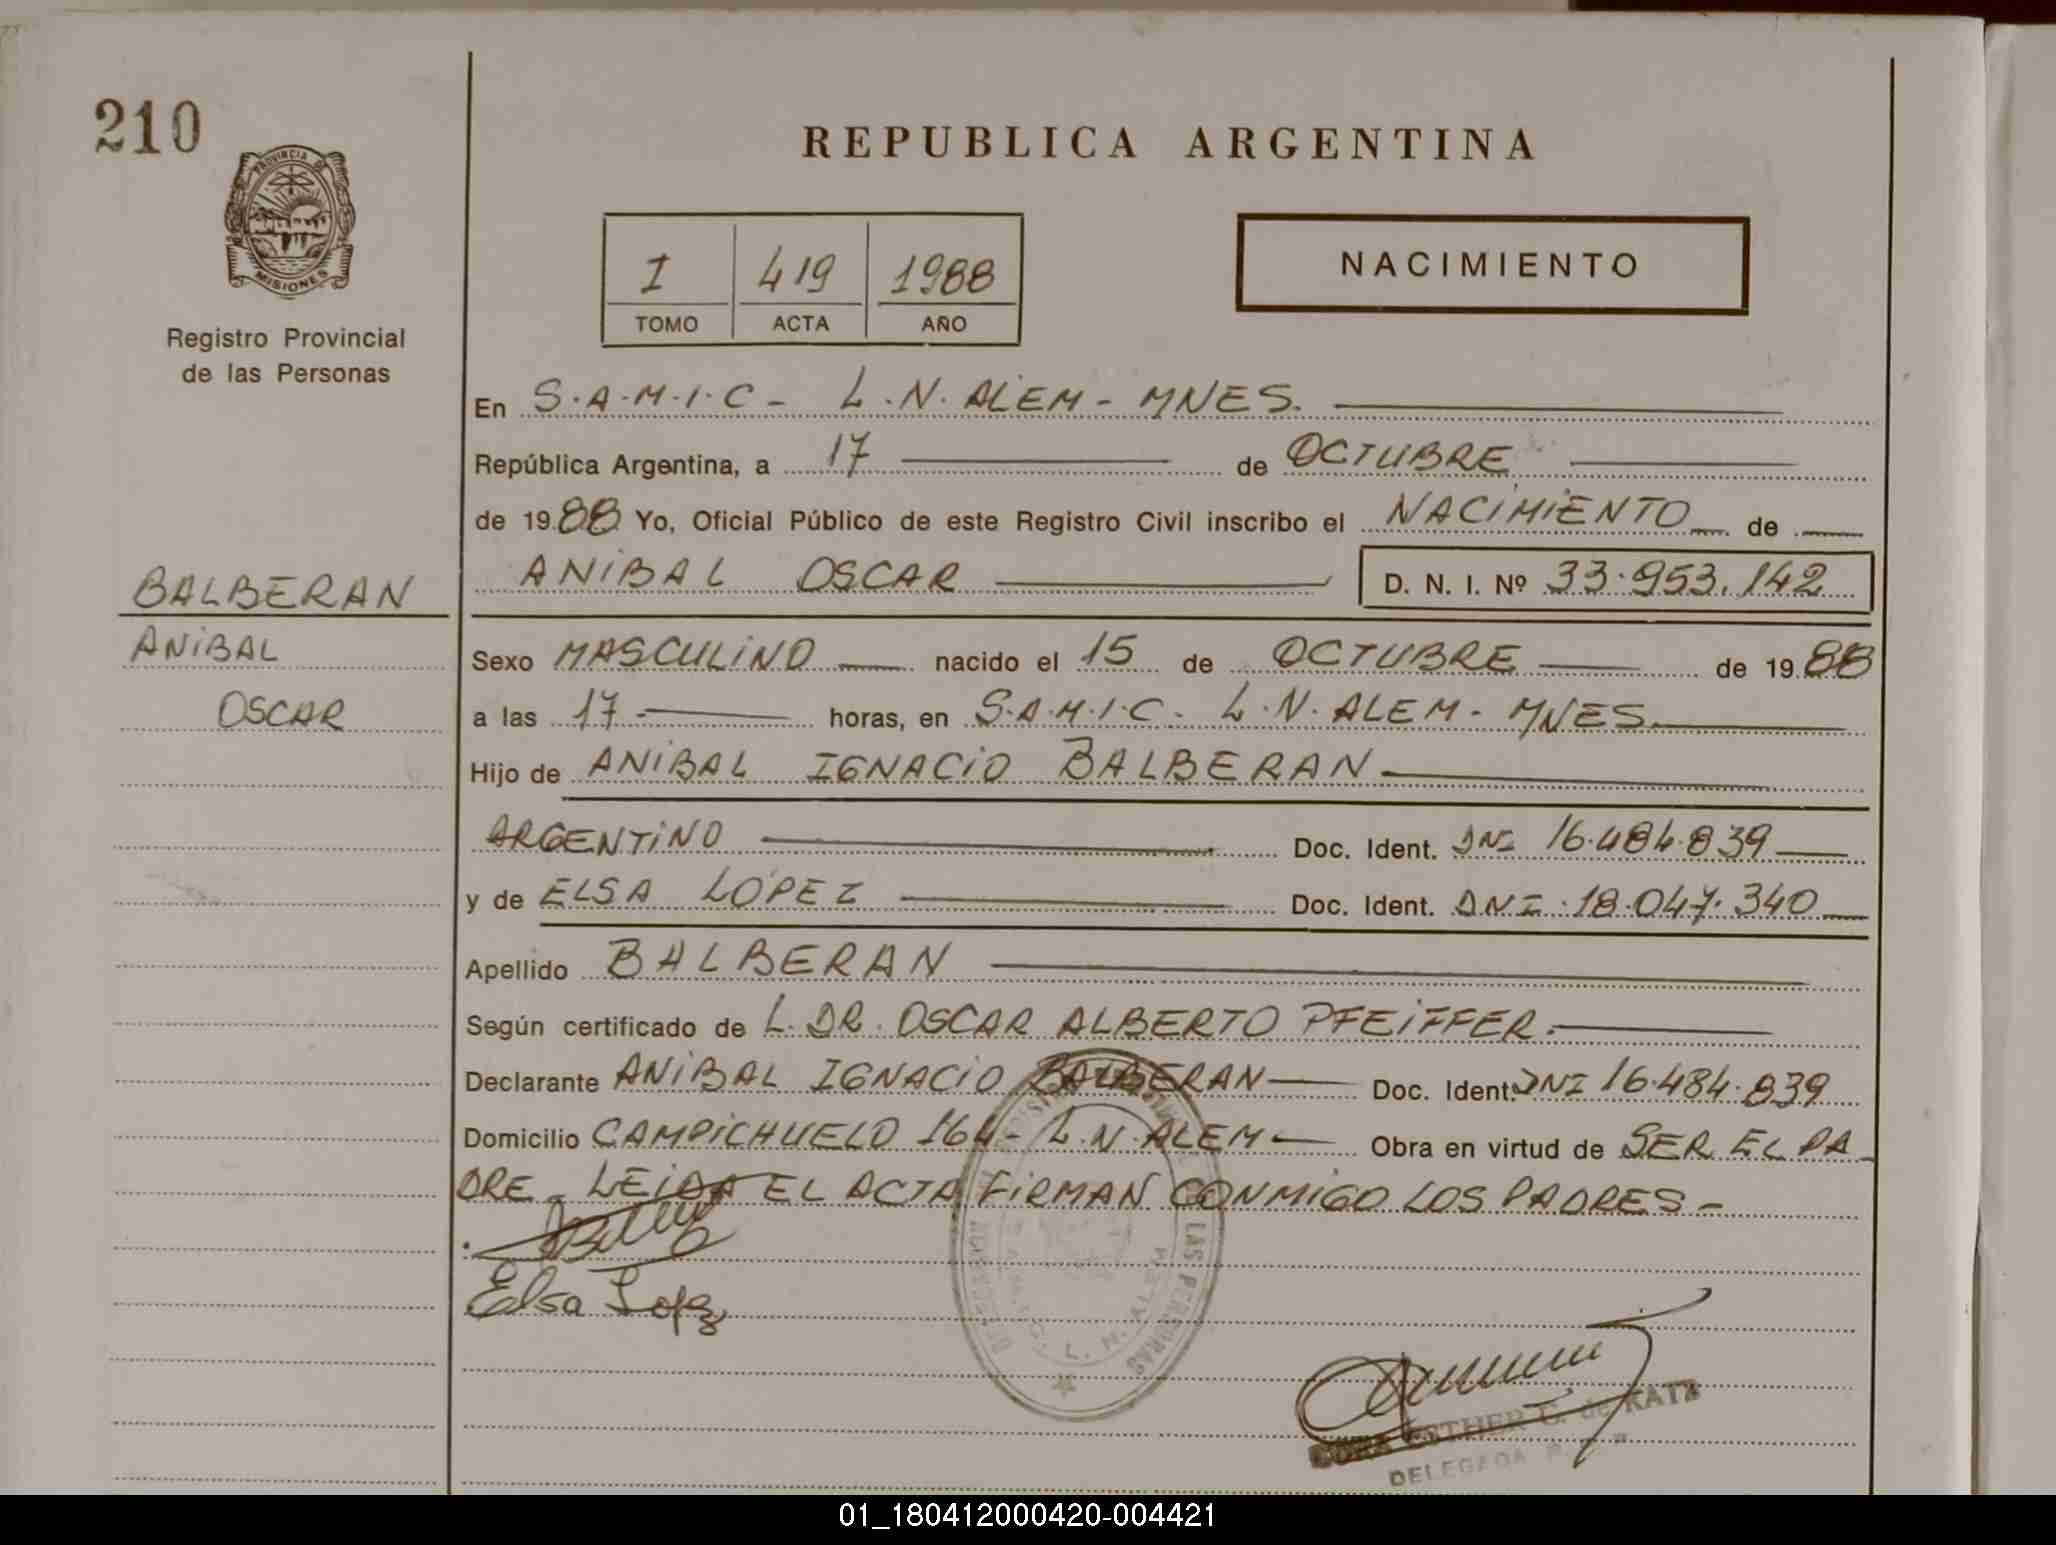 210
PROVINCIA DE
MISIONES
Registro Provincial
de las Personas
BALBERAN
ANIBAL
OSCAR
REPUBLICA ARGENTINA
I 419 1988
TOMO ACTA AÑO
NACIMIENTO
En S.A.M.I.C - L.N. ALEM - MNES.
República Argentina, a 17 de OCTUBRE
de 1988 Yo, Oficial Público de este Registro Civil inscribo el NACIMIENTO de
ANIBAL OSCAR D. N. I. Nº 33.953.142
Sexo MASCULINO nacido el 15 de OCTUBRE de 1988
a las 17 horas, en S.A.M.I.C. L.N. ALEM - MNES
Hijo de ANIBAL IGNACIO BALBERAN
ARGENTINO Doc. Ident. DNI 16.484.839
y de ELSA LOPEZ Doc. Ident. DNI 18.047.340
Apellido BALBERAN
Según certificado de L. DR. OSCAR ALBERTO PFEIFFER.
Declarante ANIBAL IGNACIO BALBERAN Doc. Ident. DNI 16.484.839
Domicilio CAMPICHUELO 164 - L.N. ALEM Obra en virtud de SER EL PA
DRE - LEIDA EL ACTA FIRMAN CONMIGO LOS PADRES -
Elsa Lopez
LAS PERSONAS
L. N. ALEM
ESTHER C. de KATZ
DELEGADA
01_180412000420-004421